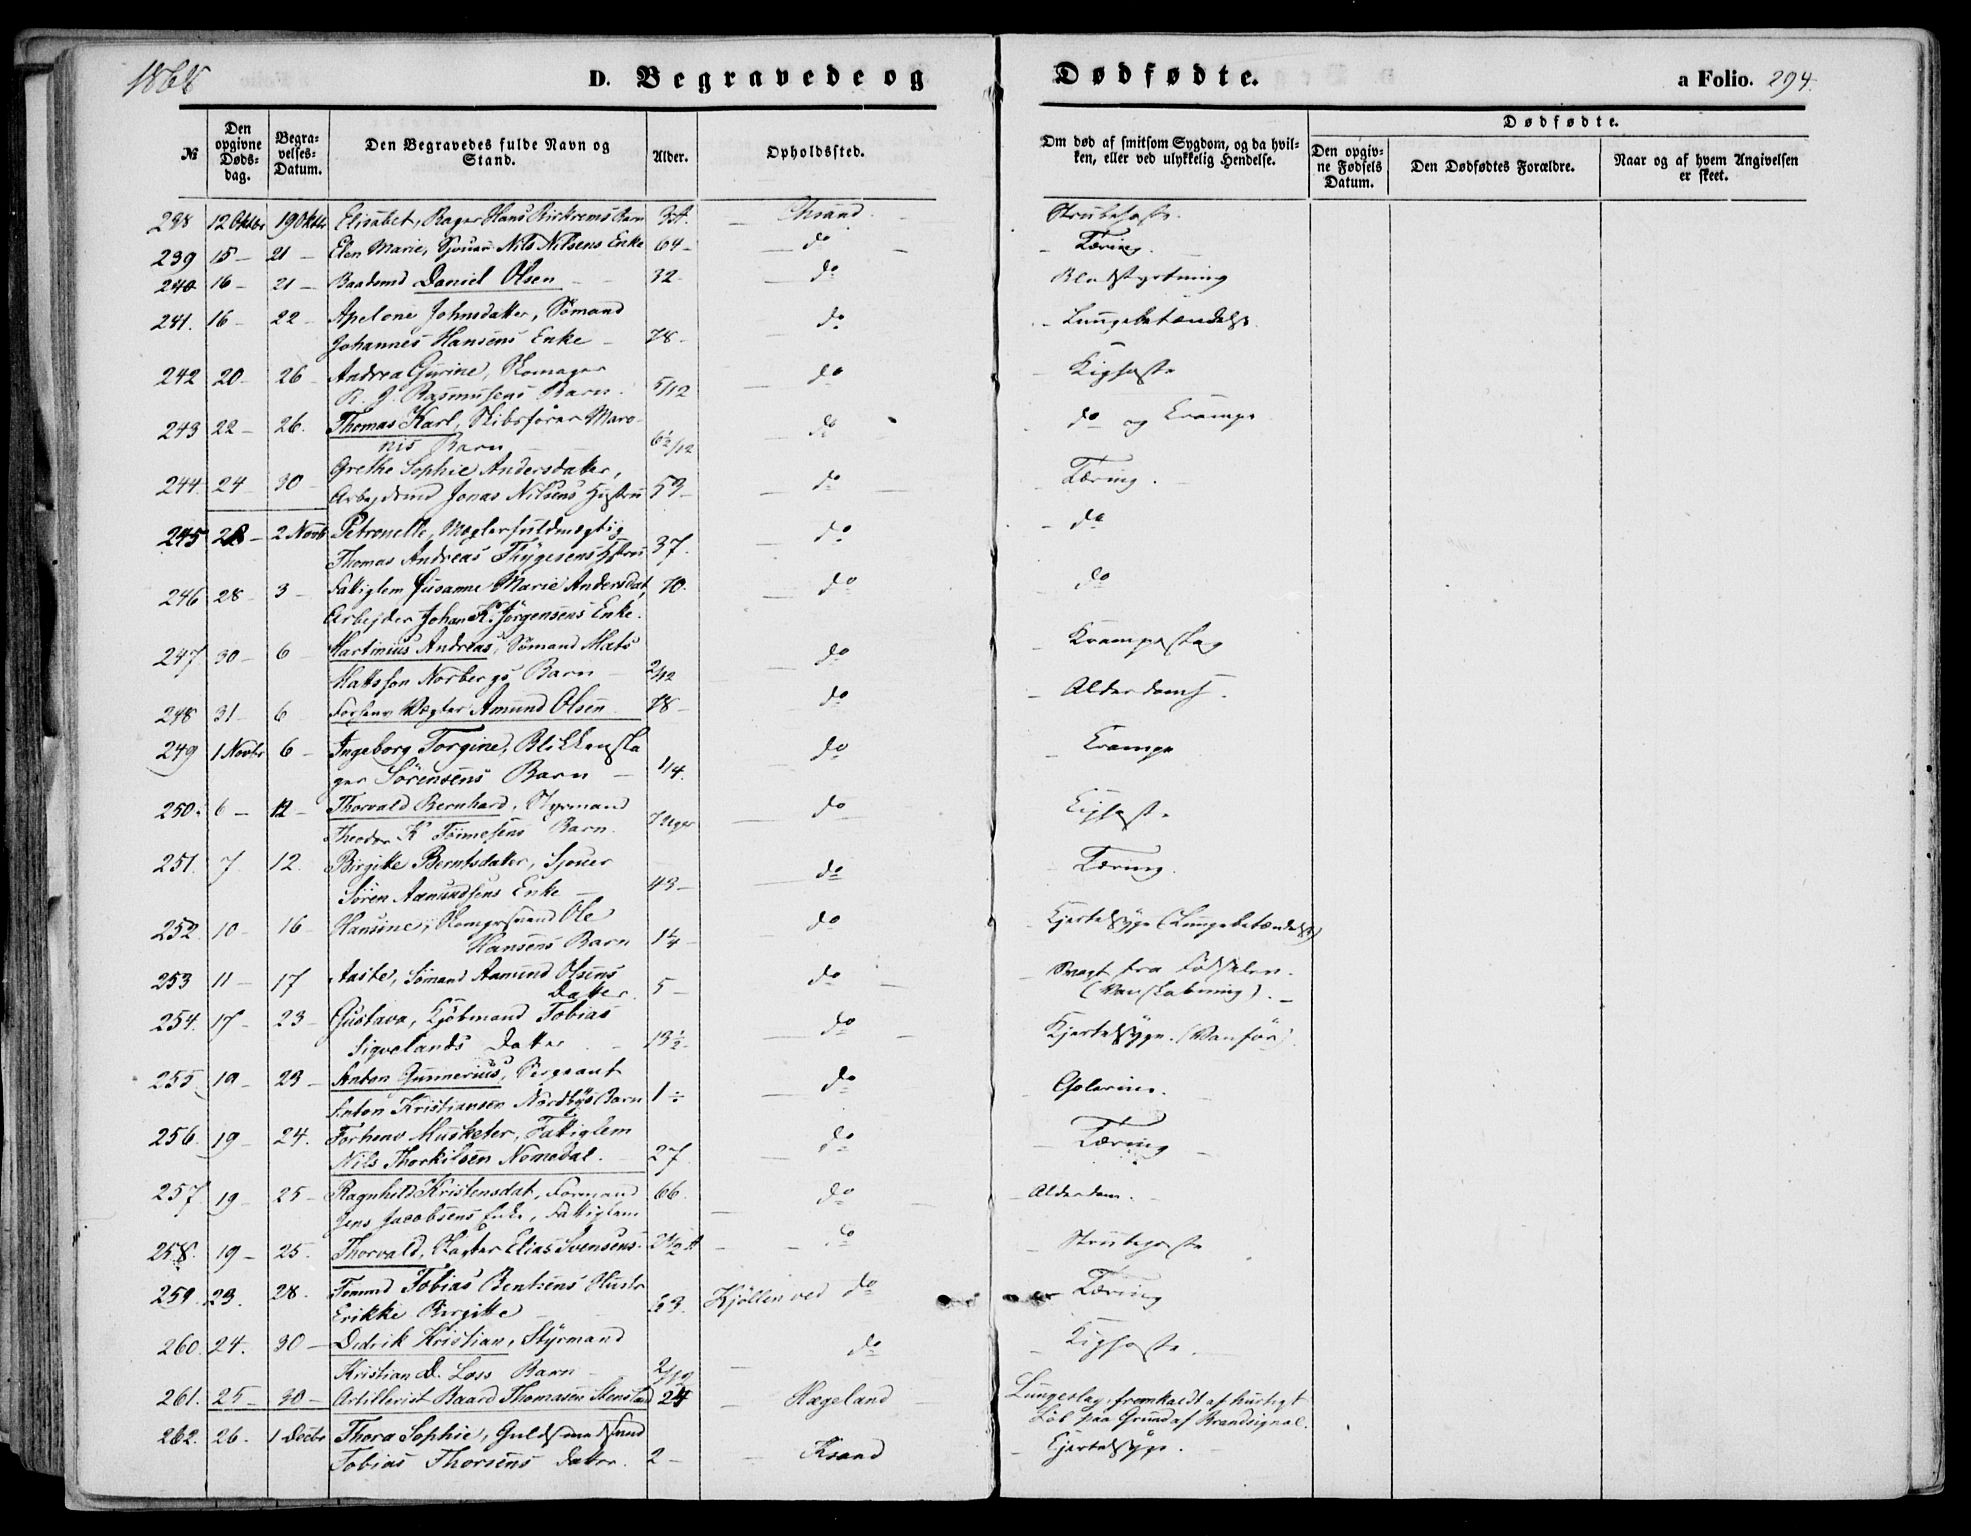 1868
D. Begravede og Dødfødte. a Folio. 294.
Dødfødte.
№ Den opgivne Døds-dag. Begra-velses-Datum. Den Begravedes fulde Navn og Stand. Alder. Opholdssted. Om død af smitsom Sygdom, og da hvil-ken, eller ved ulykkelig Hendelse. Den opgiv-ne Fødsels Datum. Den Dødfødtes Forældre. Naar og af hvem Angivelsen er skeet.
238 12 Oktbr 19 Oktbr Elisabet, Bager Hans Birkrems Barn Ksand. Strubehoste.
239 15 – 21 – Elen Marie, Sjouer Nils Nilsens Enke 64 – do – Tæring.
240 16 – 21 – Baadsmd Daniel Olsen 32 – do Blodstyrtning
241. 16 – 22 – Apelone Johnsdatter, Sømand
Johannes Hansens Enke – 78. do – Lungebetændelse.
242 20 – 26 – Andrea Gurine, Skomager
R. J. Rasmusens Barn. 5/12 do Kighoste
243 22 – 26. Thomas Karl, Skibsfører Maro-
nis Barn 6½/12 do do og Krampe
244. 24 – 30 – Grethe Sophie Andersdatter,
Arbejdsmd Jonas Nilsens Hustru 53 – do – Tæring. –
245 28 – 2 Novb Petronelle, Mæglerfuldmægtig
Thomas Andreas Thygesens Hustru 37. do – do
246 28 – 3 – Fattiglem Susanne Marie Andersdat, 70. do do
Arbejder Johan K. Jörgensens Enke.
247 30 – 6 – Martinius Andreas, Sømand Mats
Mattsson Norbergs Barn – 2/12 do Krampeslag
248 31 – 6 – Forhenv Vægter Amund Olsen 78 – do – Alderdoms.
249 1 Novbr 6 – Ingeborg Torgine, Blikkensla
ger Sörensens Barn – 1/4. do Krampe
250. 6 – 12 – Thorvald Bernhard, Styrmand
Theodor K Tönnesens Barn. 7 Uger do Kighoste.
251. 7. 12. Birgitte Berntsdatter, Sjouer
Sören Aanundsens Enke – 43 – do Tæring.
252. 10 – 16 – Hansine, Ole
Hansens Barn 1¼ – do Kjertelsyge (Lungebetændelse)
253 11 – 17 Aaste, Sømand Aanund Olsens
Datter. 5 – do Svagt fra Fødselen.
(Vanskabning). –
254. 17 – 23 – Gustava, Kjöbmand Tobias
Sigvelands Datter – 13½ – do Kjertelsyge. (Vanför).
255. 19 – 23 – Anton Gunnerius, Sergeant
Anton Kristiansen Nordbys Barn 1 do Colerine.
256. 19 – 24. Forhenv Musketer, Fattiglem
Nils Thorkilsen Nomedal. 27. do Tæring
257. 19 – 25 – Ragnhild Kristensdat, Formand 66. do – Alderdom. –
Jens Jacobsens Enke, Fattiglem
258. 19 – 25. Thorvald, Elias Svensens. 2½ do Strubehoste
259. 23. 28. Tobias Bentsens Hustr
Erikke Birgitte 63. Kjöllen ved do Tæring
260. 24. 30 – Didrik Kristian, Styrmand
Kristian D. Loss Barn – 2/12 do Kighoste.
261. 25 – 30 – Artillerist Baard Thomasen Stensland 24 Hægeland Lungeslag, fremkaldt af hurtigt
Löb paa Grund af Brandsignal.
262. 26. 1 Decbr Thora Sophie, Guldsmedsvend
Tobias Thorsens Datter. 2 – Ksand – Kjertelsyge.